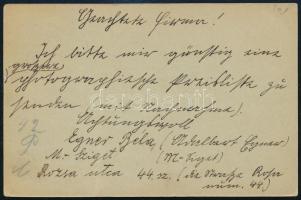 Geachtete Firma!
Ich bitte mir günstig eine
grosse
photographische Preisliste zu
senden (mit Nachnahme).
Achtungsvoll
Egner Béla (Adelbert Egner)
M.-Sziget (M-Sziget)
Rozsa utca 44 sz. (die Strasse Rosa
num. 44)